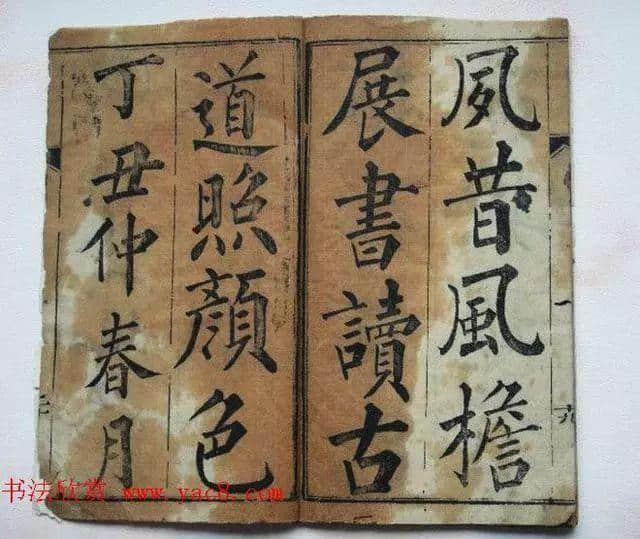 夙昔風檐
展書讀古
道照顔色
丁丑仲春月
书法欣赏 www.yac8.com